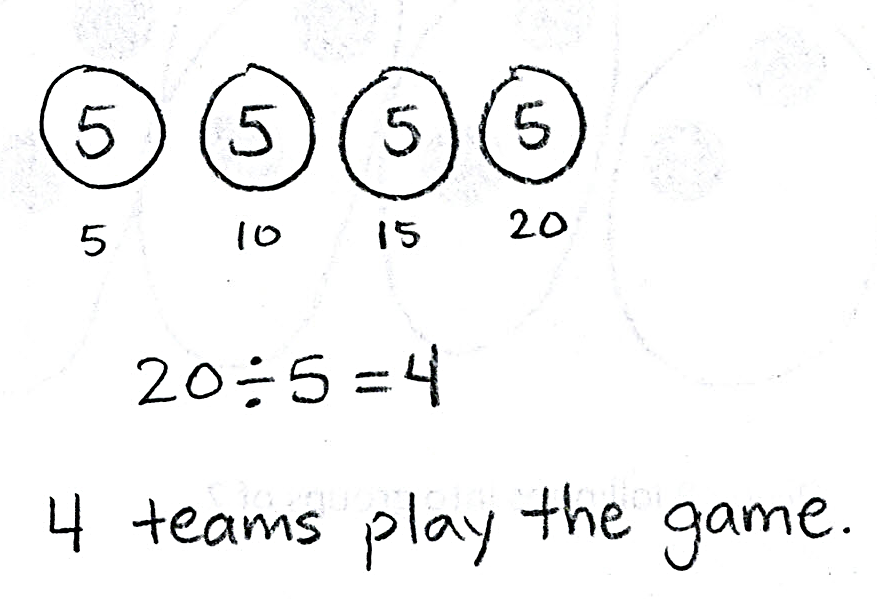 5 5 5 5
5 10 15 20
20÷5=4
4 teams play the game.